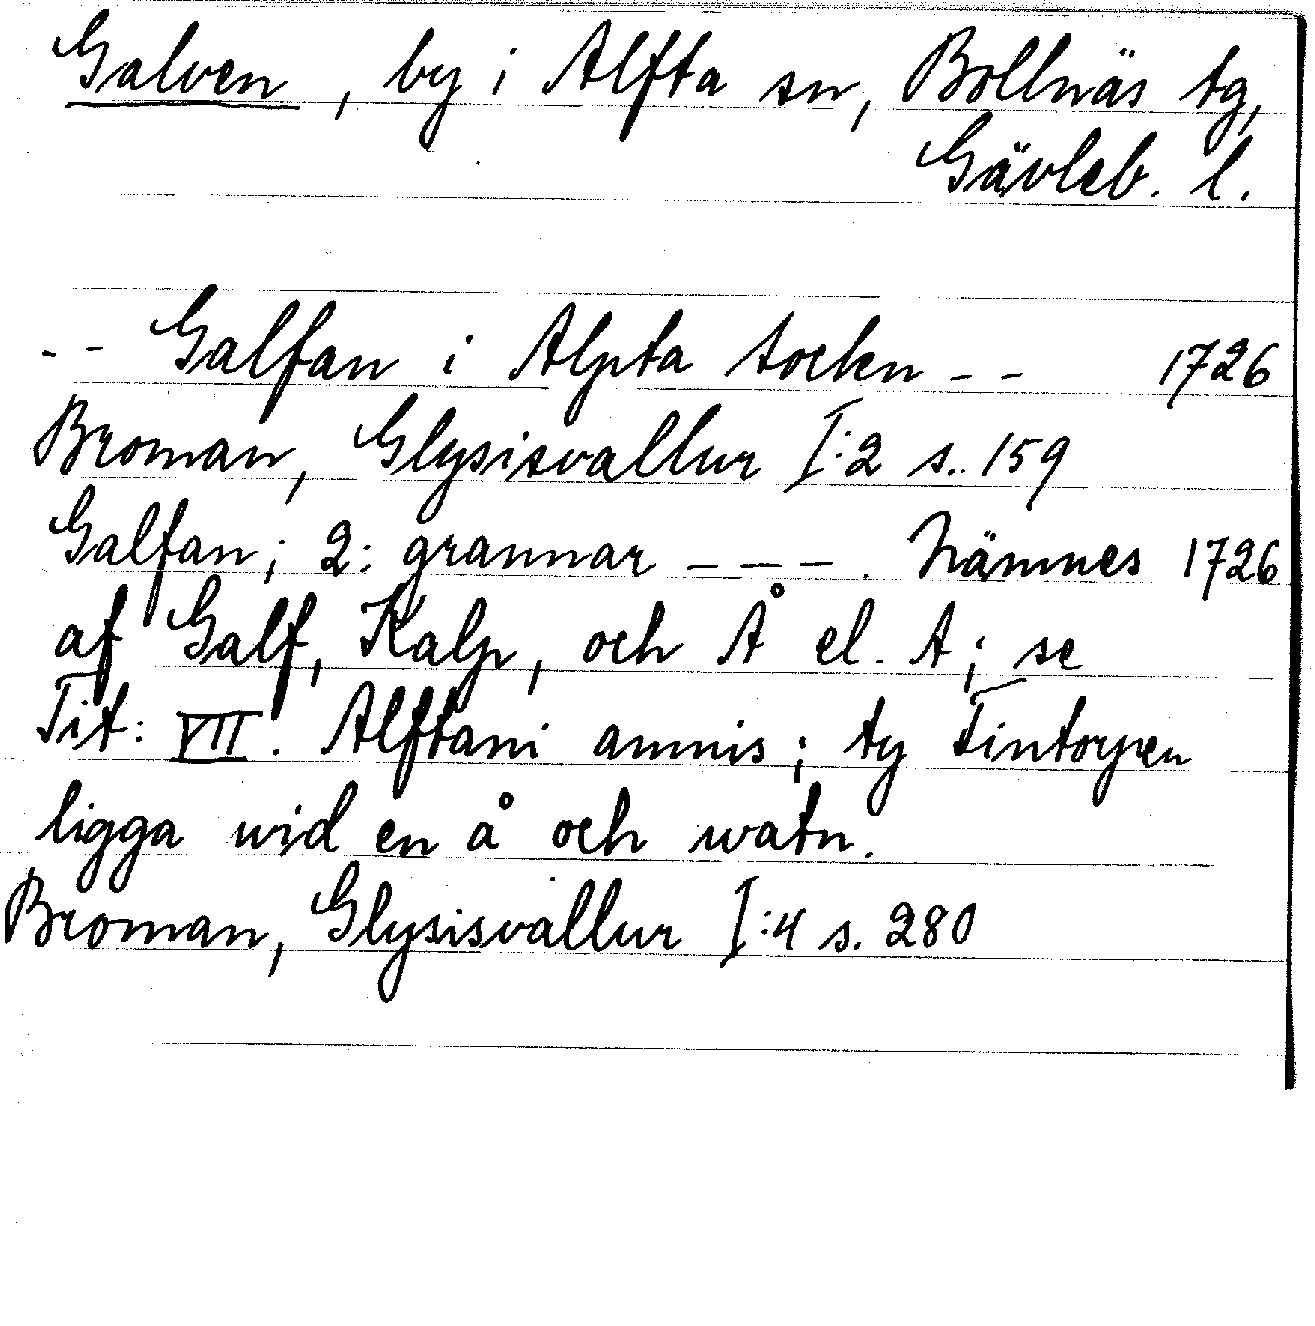 Galven, by i Alfta sn, Bollnäs tg,
Gävleb. l.
- - Galfan i Alpta sockn - - 1726
Broman, Glysisvallur I:2 s. 159
Galfan; 2: grannar - - - . Nämnes 1726
af Galf, Kalp, och Å el. A; se
Tit: VII. Alftani amnis; ty Tintorpen
ligga wid en å och watn.
Broman, Glysisvallur I:4 s. 280